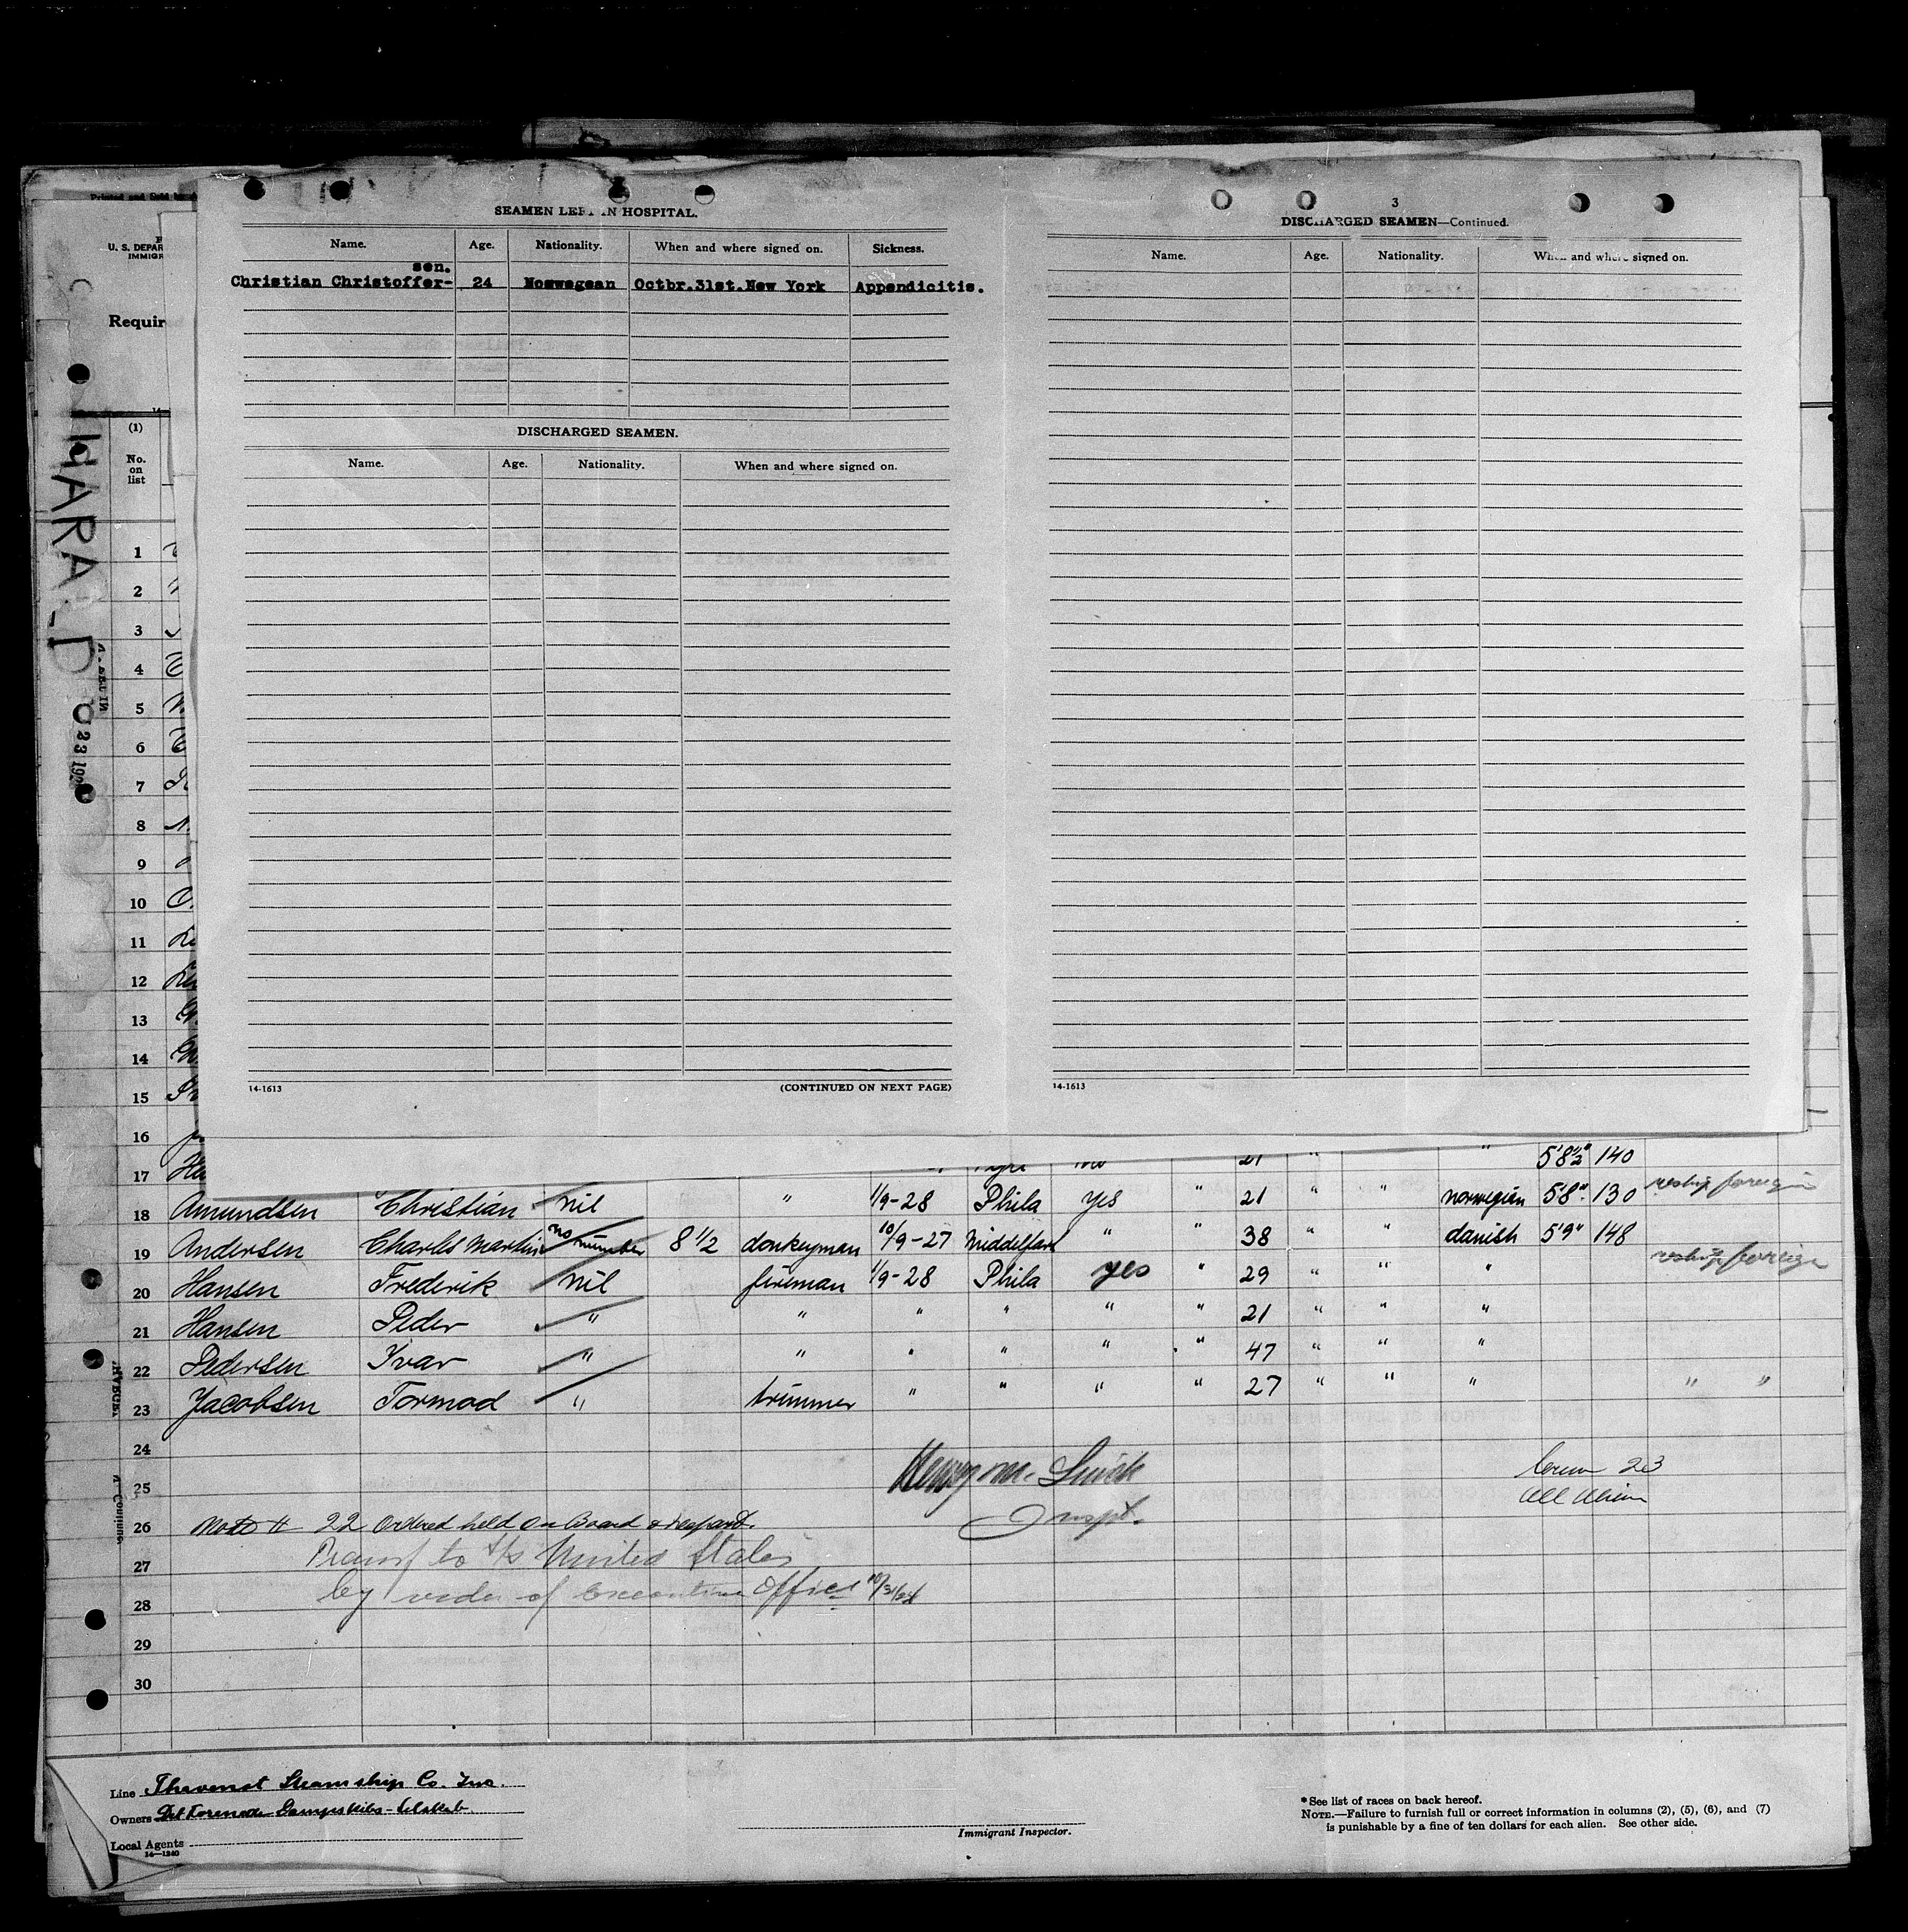 SEAMEN LEFT IN HOSPITAL.
Name. Age. Nationality. When and where signed on. Sickness.
sen.
Christian Christoffer- 24 Noswegean Octbr.31st.New York Appendicitis.
DISCHARGED SEAMEN.
Name. Age. Nationality. When and where signed on.
14-1613 (CONTINUED ON NEXT PAGE)
3
DISCHARGED SEAMEN—Continued.
Name. Age. Nationality. When and where signed on.
14-1613
Printed and sold by
U. S. DEPAR
IMMIGR
Requir
14
(1)
No.
on
list
HARALD
1
2
3
4
5
6
7
8
9
10
11
12
13
14
15
16
17 21 " 5'8½" 140
18 Amundsen Christian nil " 1/9-28 Phila yes " 21 " " norwegian 5'8" 130 reship foreign
19 Andersen Charles Martin no number 8 1/2 donkeyman 10/9-27 Middelfart " " 38 " " danish 5'9" 148
20 Hansen Frederik nil fireman 1/9-28 Phila yes " 29 " " " reship foreign
21 Hansen Peder " " " " " " 21 " " "
22 Pedersen Ivar " " " " " " 47 " " "
23 Jacobsen Tormod " trimmer " " " " 27 " " " " "
24
25
26 Note # 22 Ordered held on Board & deport.
27 Transf to S/S United States
28 by order of Executive Office 10/31/28
29
30
Henry M.
Inspt.
23
All Aliens
Line Thevenot Steamship Co. Inc.
Owners Det Forenede Dampskibs-Selskab
Local Agents
14—1240
Immigrant Inspector.
*See list of races on back hereof.
NOTE.—Failure to furnish full or correct information in columns (2), (5), (6), and (7)
is punishable by a fine of ten dollars for each alien. See other side.